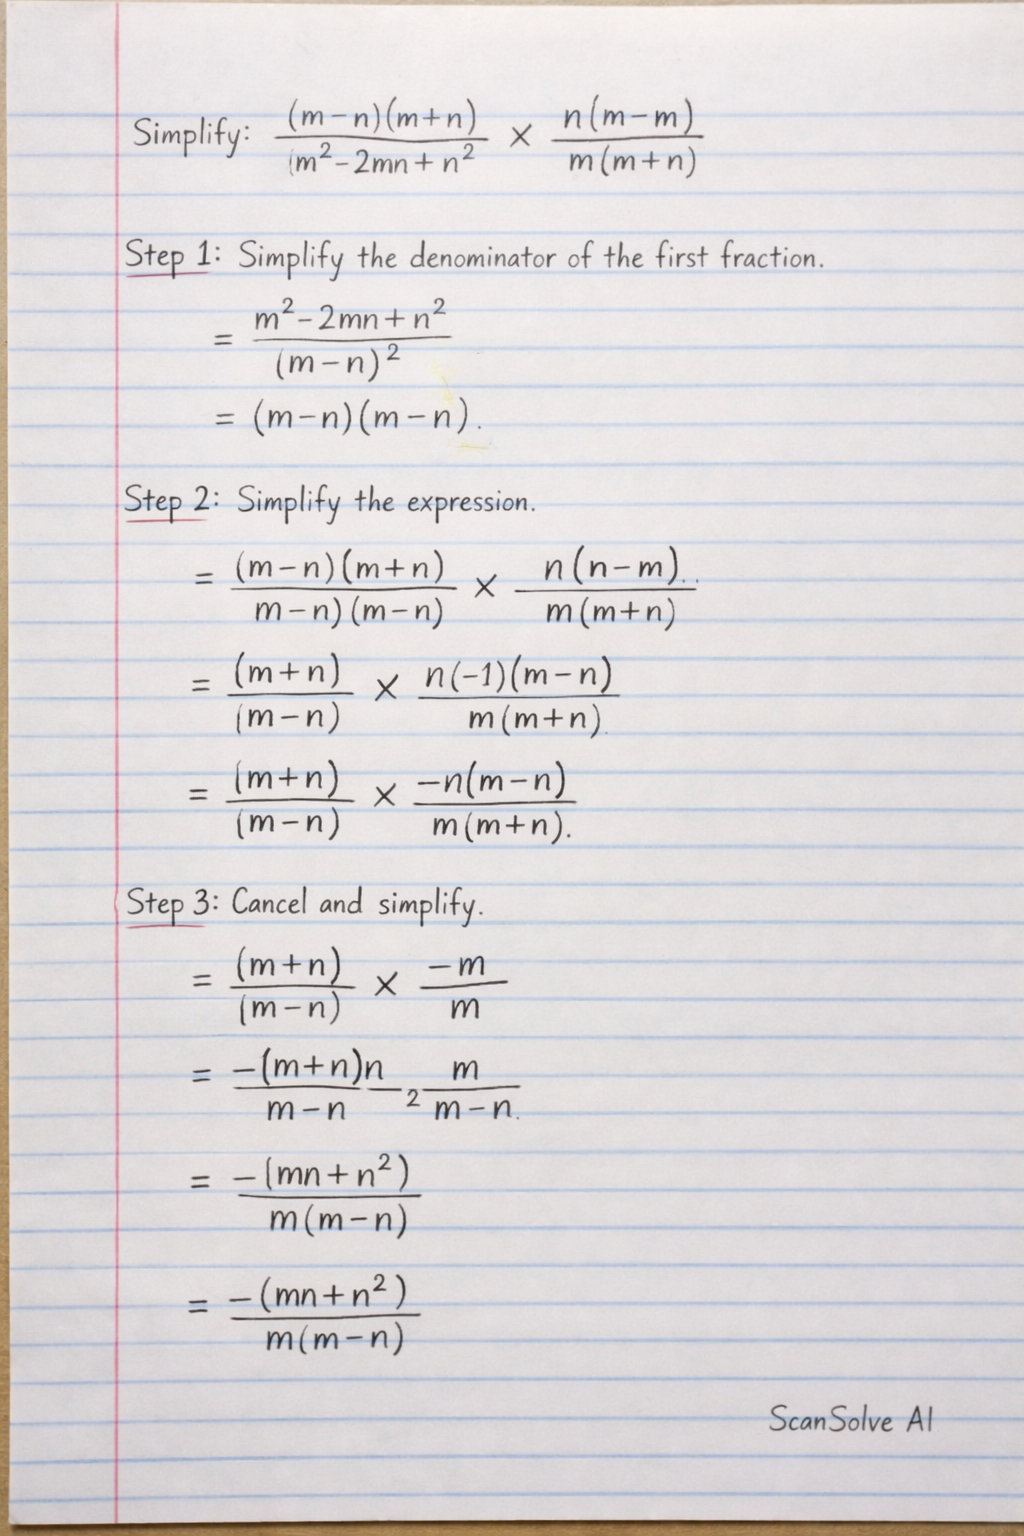 Simplify: (m-n)(m+n) / (m²-2mn+n² × n(m-m) / m(m+n)
Step 1: Simplify the denominator of the first fraction.
= m²-2mn+n² / (m-n)²
= (m-n)(m-n).
Step 2: Simplify the expression.
= (m-n)(m+n) / m-n)(m-n) × n(n-m).. / m(m+n)
= (m+n) / (m-n) × n(-1)(m-n) / m(m+n).
= (m+n) / (m-n) × -n(m-n) / m(m+n).
Step 3: Cancel and simplify.
= (m+n) / (m-n) × -m / m
= -(m+n)n / m-n — 2 m / m-n.
= -(mn+n²) / m(m-n)
= -(mn+n²) / m(m-n)
ScanSolve AI